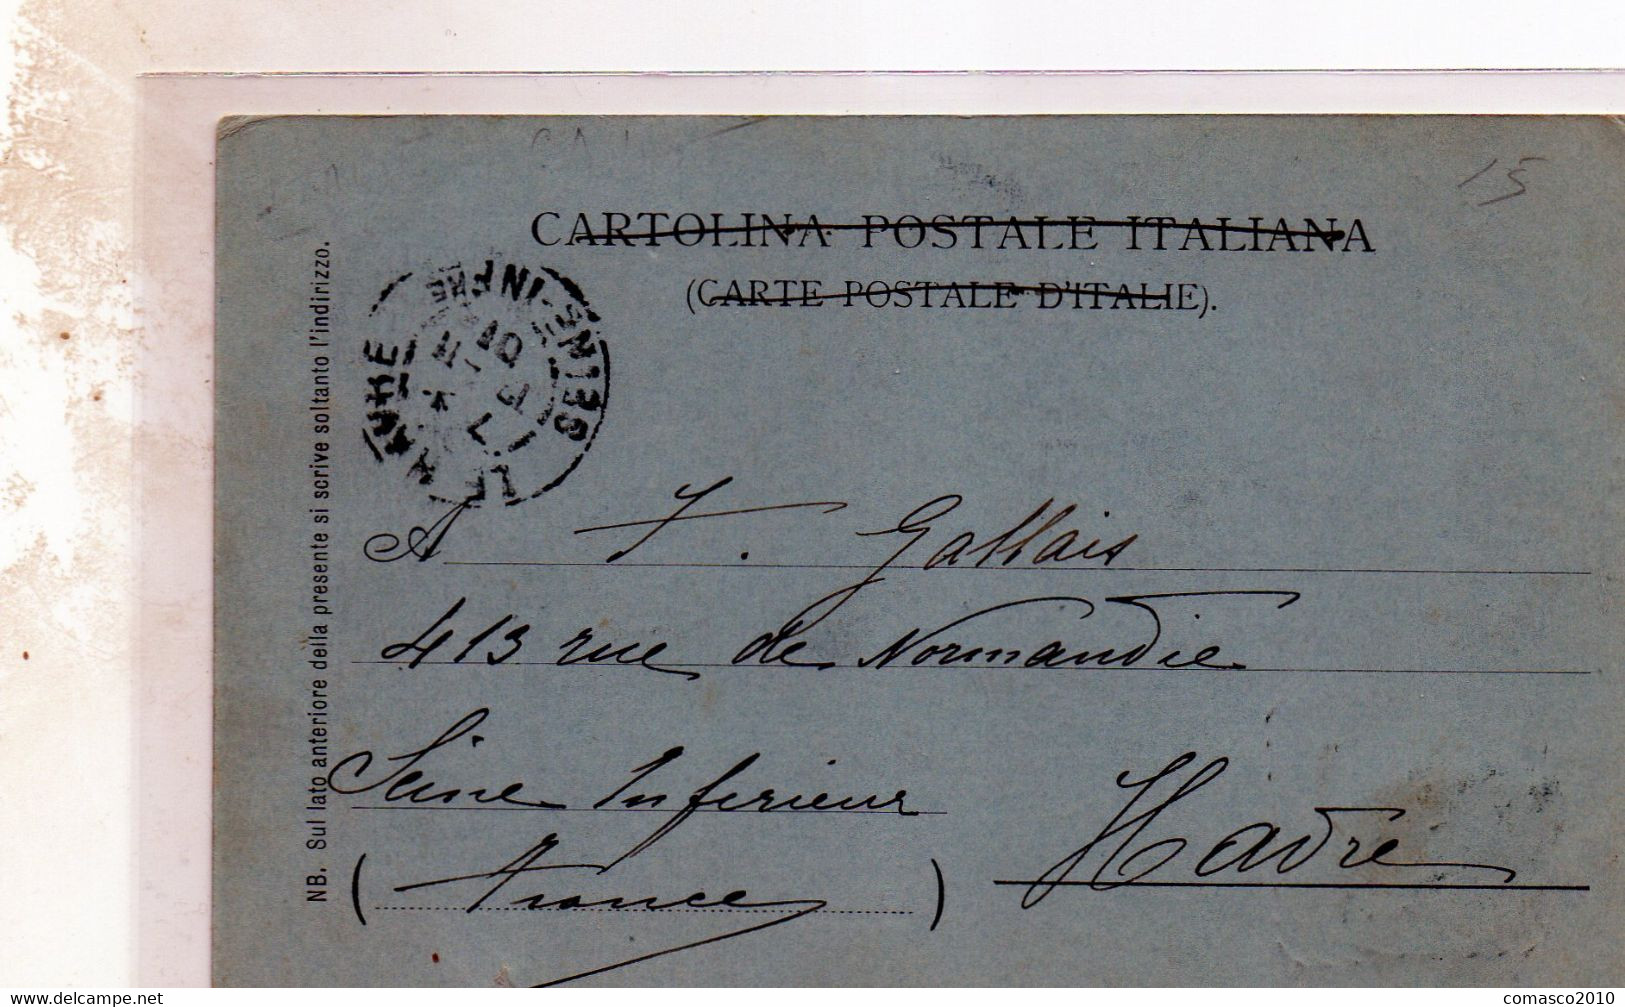 15
CARTOLINA POSTALE ITALIANA
(CARTE POSTALE D'ITALIE).
NB. Sul lato anteriore della presente si scrive soltanto l'indirizzo.
LE HAVRE SEINE-INFRE
A Gallais
413 rue de Normandie
Seine Inferieur
Havre
(France)
delcampe.net
comasco2010